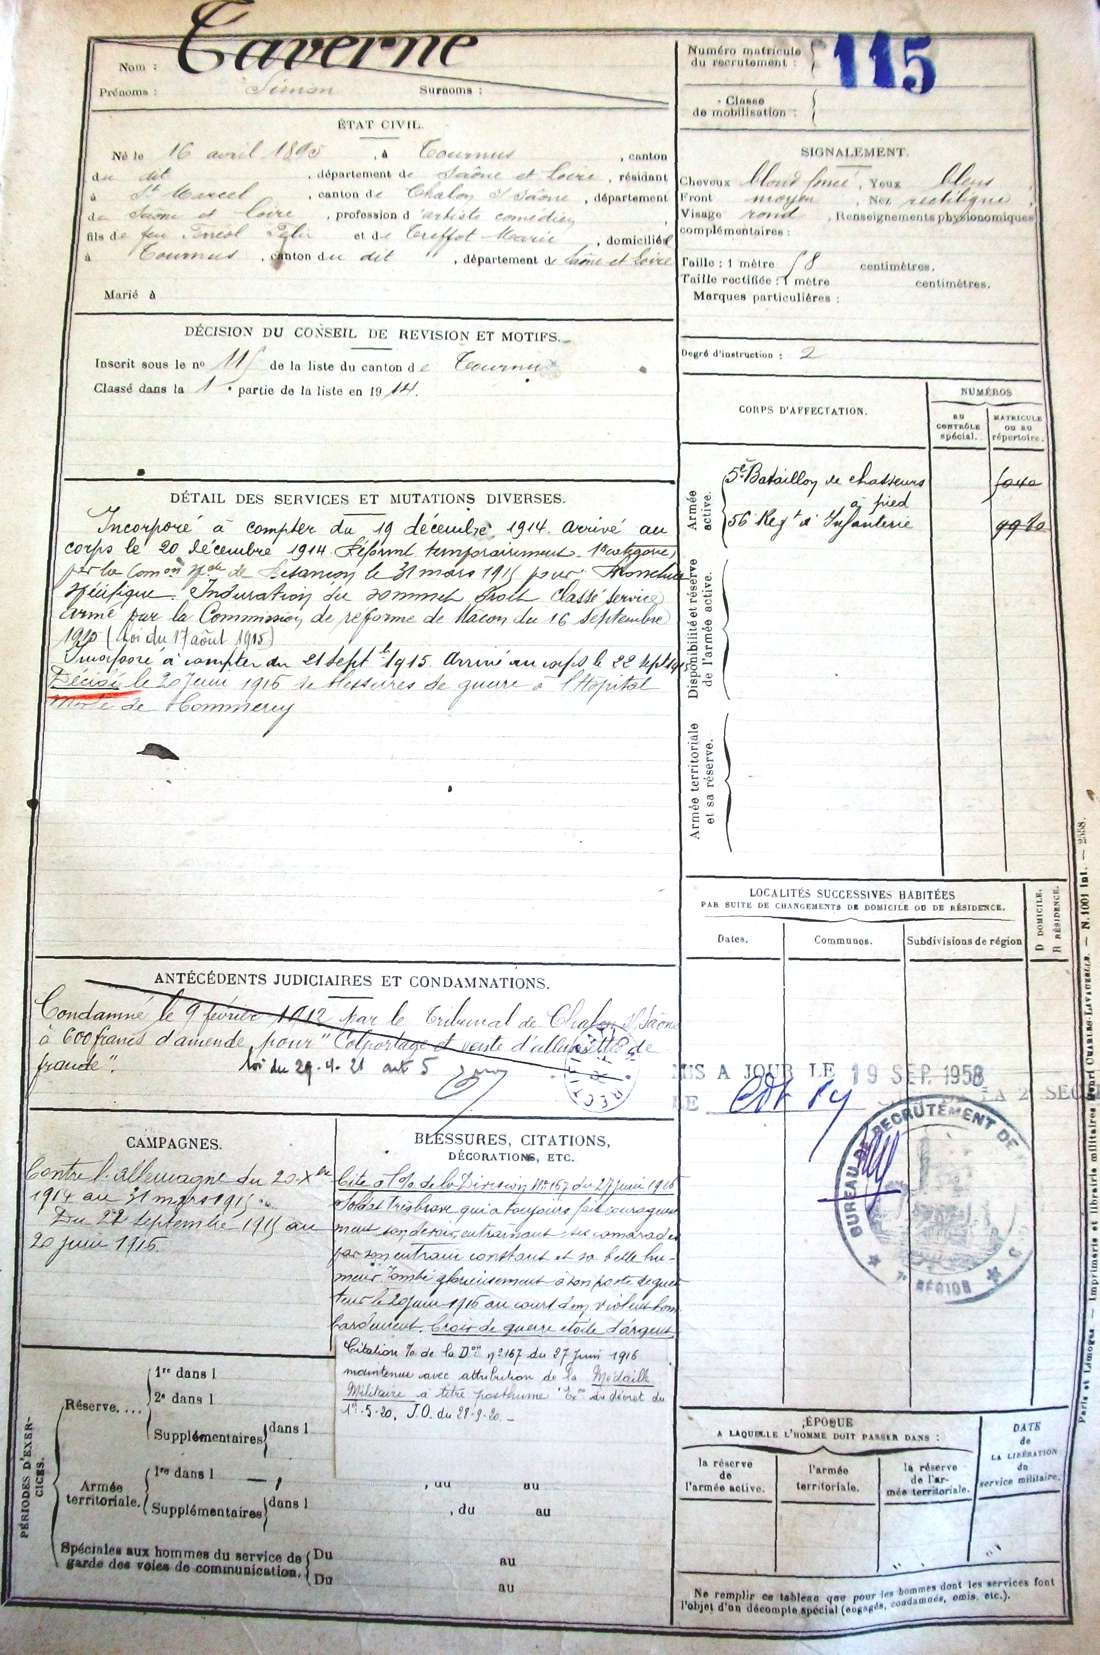 Nom : Taverne
Prénoms : Simon Surnoms :
ÉTAT CIVIL.
Né le 16 avril 1895, à Tournus, canton
du dit, département de Saône et Loire, résidant
à St Marcel, canton de Chalon s/Saône, département
de Saône et Loire, profession d'artiste comédien
fils de feu et de Treffot Marie, domiciliés
à Tournus, canton du dit, département de Saône et Loire
Marié à
DÉCISION DU CONSEIL DE REVISION ET MOTIFS.
Inscrit sous le no 115 de la liste du canton de Tournus
Classé dans la 1e partie de la liste en 1914.
DÉTAIL DES SERVICES ET MUTATIONS DIVERSES.
Incorporé à compter du 19 décembre 1914. Arrivé au
corps le 20 décembre 1914 Réformé temporairement 1e catégorie,
par la Comon Spale de Besançon le 31 mars 1915 pour Bronchite
spécifique. Induration du sommet droit Classé service
armé par la Commission de réforme de Mâcon du 16 septembre
1915 (Loi du 17 août 1915)
Incorporé à compter du 21 sept 1915. Arrivé au corps le 22 sept 1915
Décédé le 20 Juin 1916 de blessures de guerre à l'Hôpital
Mixte de Commercy
ANTÉCÉDENTS JUDICIAIRES ET CONDAMNATIONS.
Condamné le 9 février 1912 par le Tribunal de Chalon s/Saône
à 600 francs d'amende pour "Colportage et vente d'allumettes de
fraude".
Loi du 29-4-21 art 5
RECTIFIÉ
CAMPAGNES.
Contre l'Allemagne du 20 Xbre
1914 au 31 mars 1915.
Du 22 septembre 1915 au
20 juin 1916.
BLESSURES, CITATIONS,
DÉCORATIONS, ETC.
Cité à l'O/ de la Division No 167 du 27 juin 1916
Soldat très brave qui a toujours fait courageuse
ment son devoir, entraînant ses camarades
par son entrain constant et sa belle hu-
meur. Tombé glorieusement à son poste de guet
teur le 20 juin 1916 au court d'un violent bom
bardement. Croix de guerre étoile d'argent
Citation % de la Don no 167 du 27 juin 1916
maintenue avec attribution de la Médaille
Militaire à titre posthume Exon du décret du
1er-5-20, J.O. du 28-9-20. -
PÉRIODES D'EXER-
CICES.
Réserve....
1re dans l
2e dans l
Supplémentaires dans l
Armée
territoriale.
1re dans l
, au au
Supplémentaires dans l , du au
Spéciales aux hommes du service de
garde des voies de communication.
Du au
Du au
Numéro matricule
du recrutement : 115
Classe
de mobilisation :
SIGNALEMENT.
Cheveux blond foncé, Yeux bleus
Front moyen, Nez rectiligne
Visage rond, Renseignements physionomiques
complémentaires :
Taille : 1 mètre 58 centimètres.
Taille rectifiée : 1 mètre centimètres.
Marques particulières :
Degré d'instruction : 2
CORPS D'AFFECTATION.
NUMÉROS
AU
CONTRÔLE
spécial.
MATRICULE
OU AU
répertoire.
Armée
active.
5e Bataillon de chasseurs
à pied
56e Regt d'Infanterie
Disponibilité et réserve
de l'armée active.
Armée territoriale
et sa réserve.
LOCALITÉS SUCCESSIVES HABITÉES
PAR SUITE DE CHANGEMENTS DE DOMICILE OU DE RÉSIDENCE.
Dates.
Communes.
Subdivisions de région
D DOMICILE.
R RÉSIDENCE.
MIS A JOUR LE 19 SEP. 1958
BUREAU DE RECRUTEMENT DE
7e RÉGION
ÉPOQUE
A LAQUELLE L'HOMME DOIT PASSER DANS :
la réserve
de
l'armée active.
l'armée
territoriale.
la réserve
de l'ar-
mée territoriale.
DATE
de
LA LIBÉRATION
du
service militaire.
Ne remplir ce tableau que pour les hommes dont les services font
l'objet d'un décompte spécial (engagés, condamnés, omis, etc.).
Paris et Limoges. — Imprimerie et librairie militaires Henri CHARLES-LAVAUZELLE. — N. 1001 Int. — 2558.